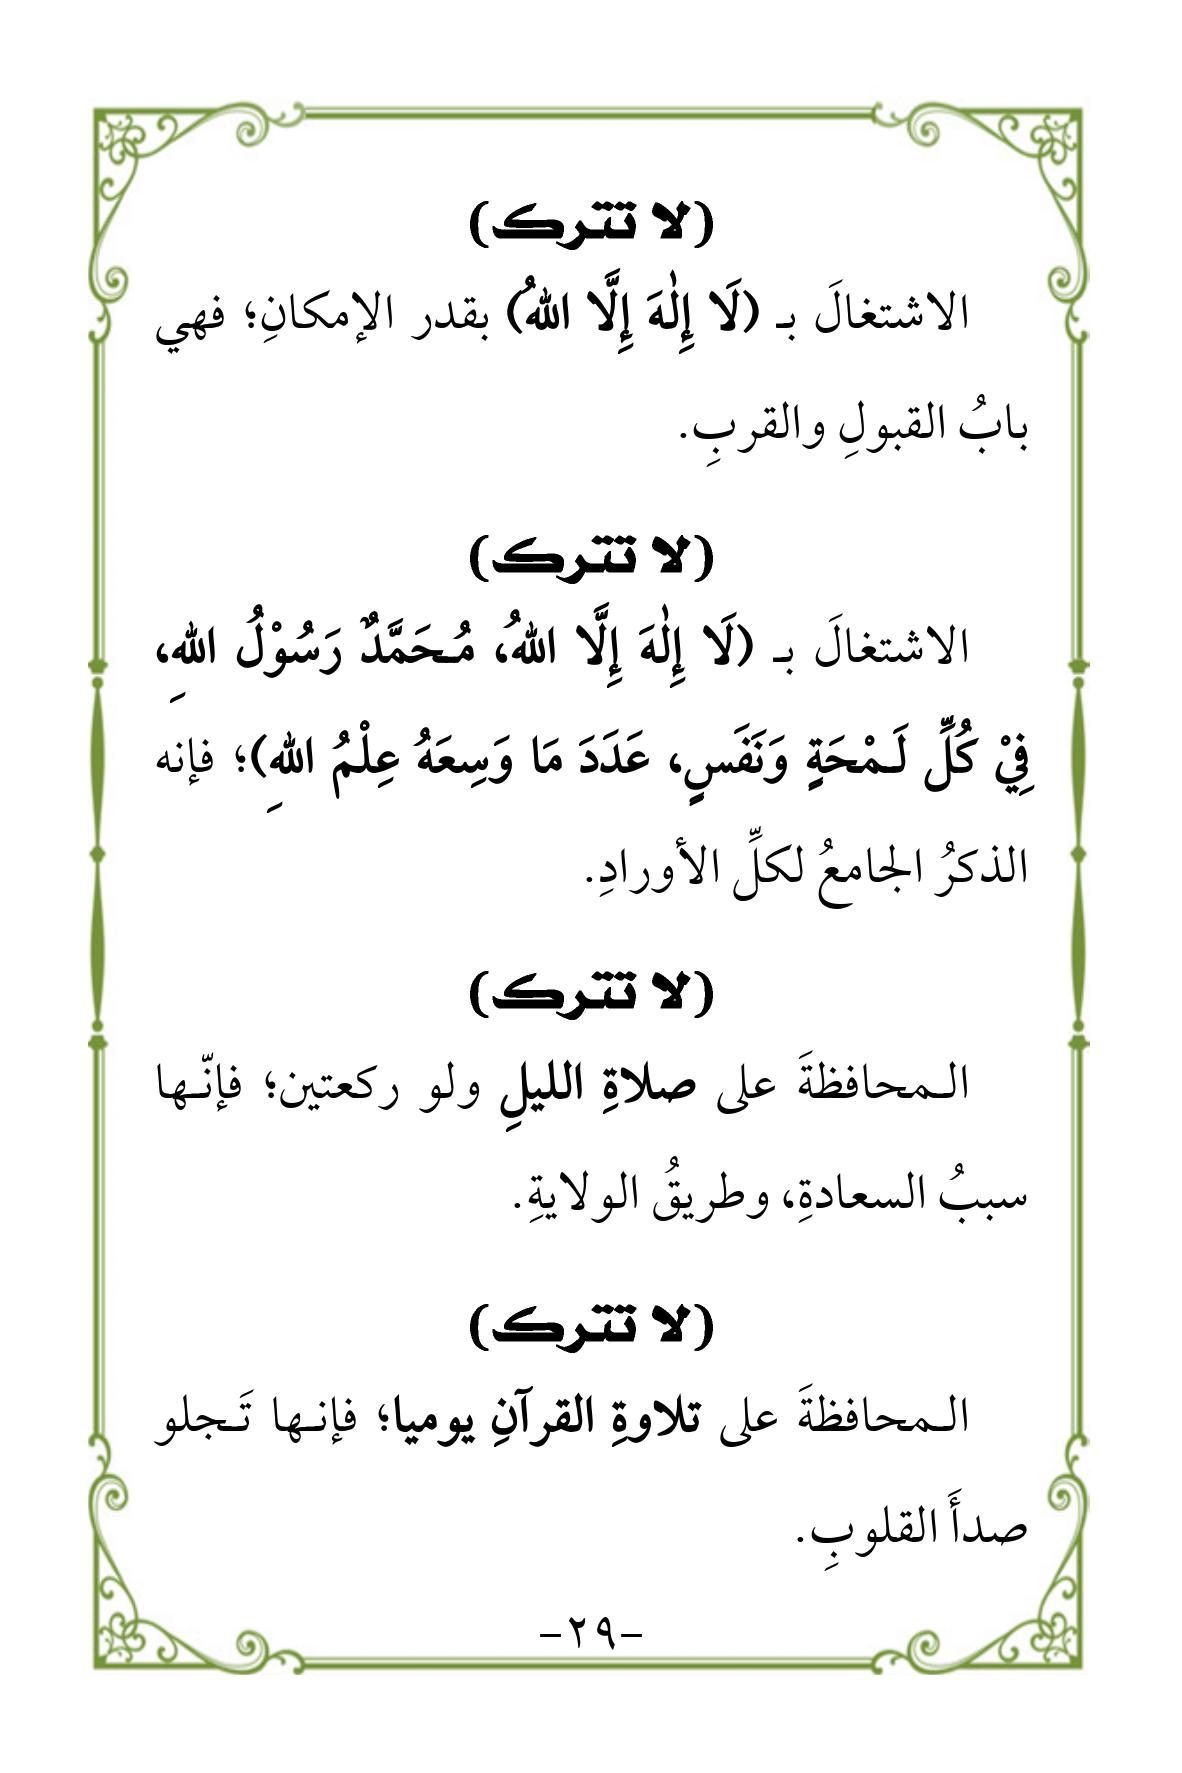 (لا تترك)
الاشتغالَ بـ (لَا إِلٰهَ إِلَّا اللهُ) بقدر الإمكانِ؛ فهي
بابُ القبولِ والقربِ.
(لا تترك)
الاشتغالَ بـ (لَا إِلٰهَ إِلَّا اللهُ، مُـحَمَّدٌ رَسُوْلُ اللهِ،
فِيْ كُلِّ لَـمْحَةٍ وَنَفَسٍ، عَدَدَ مَا وَسِعَهُ عِلْمُ اللهِ)؛ فإنه
الذكرُ الجامعُ لكلِّ الأورادِ.
(لا تترك)
الـمحافظةَ على صلاةِ الليلِ ولو ركعتين؛ فإنّـها
سببُ السعادةِ، وطريقُ الولايةِ.
(لا تترك)
الـمحافظةَ على تلاوةِ القرآنِ يوميا؛ فإنـها تَـجلو
صدأَ القلوبِ.
-٢٩-